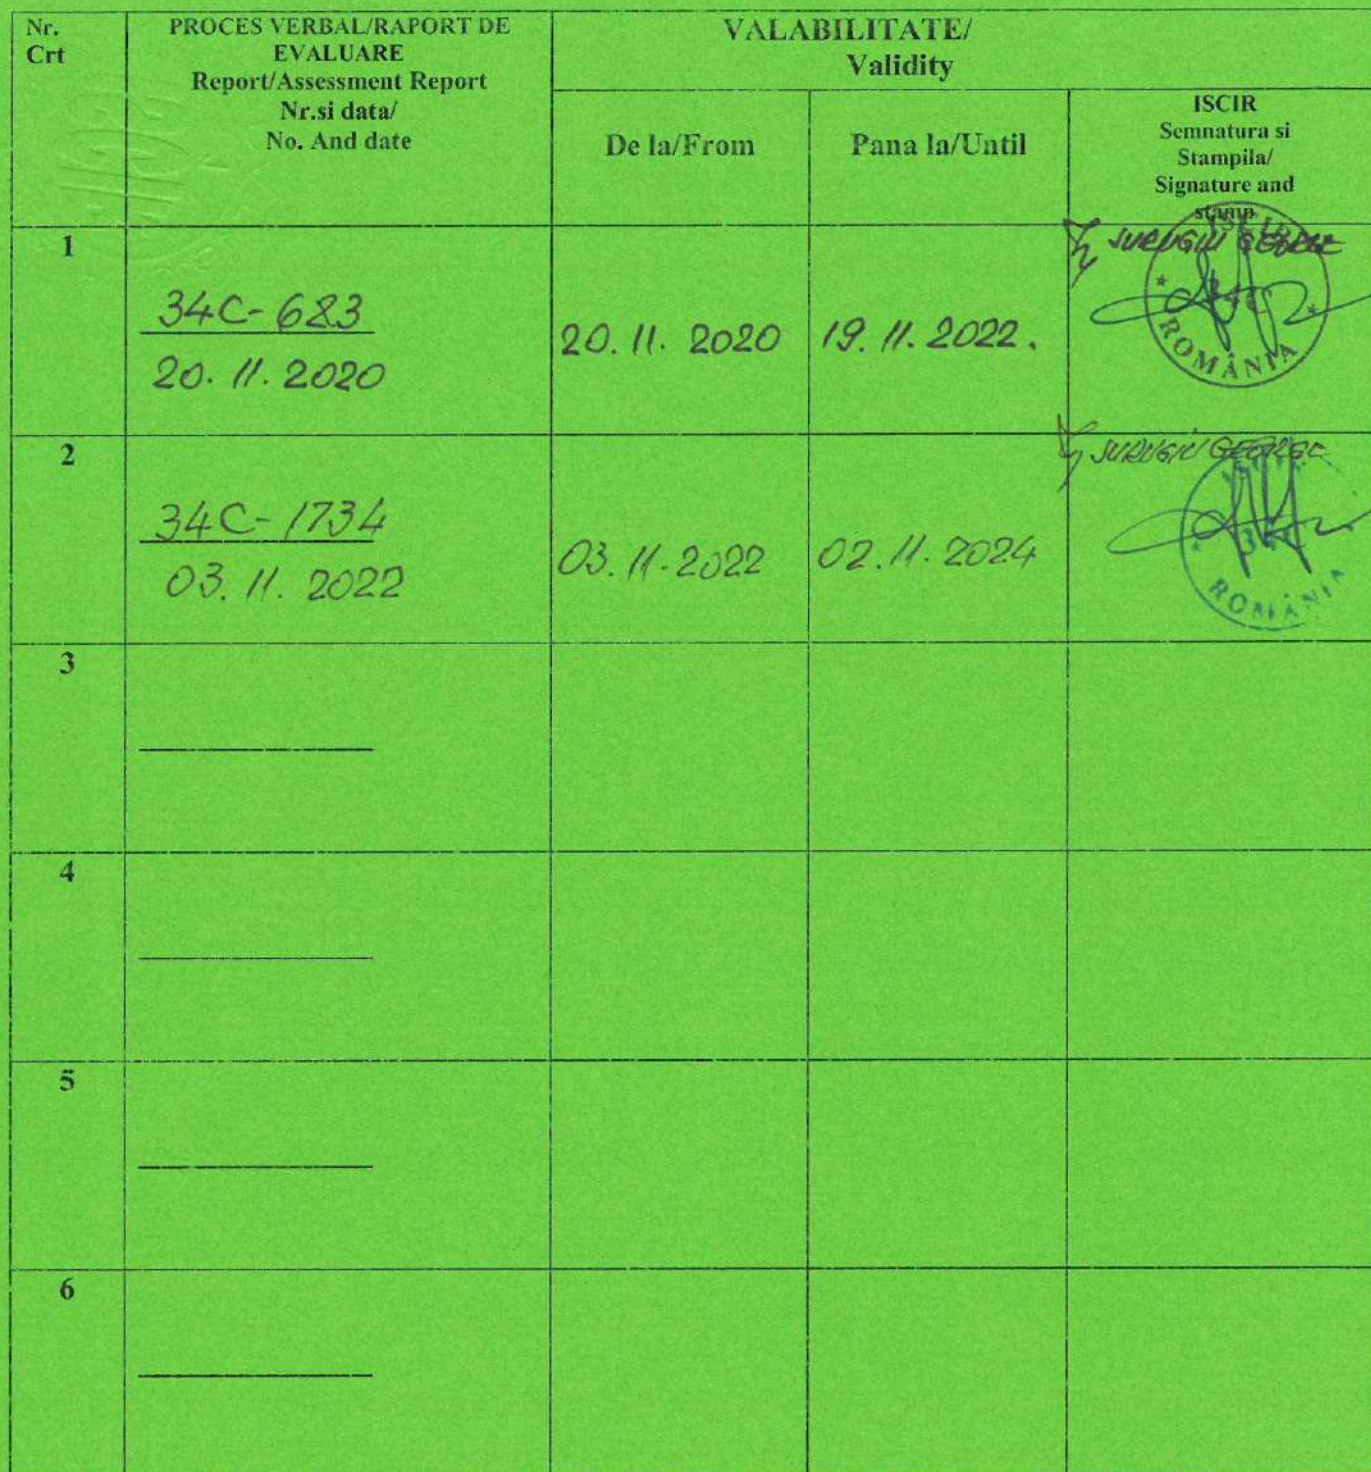 Nr.
Crt
PROCES VERBAL/RAPORT DE
EVALUARE
Report/Assessment Report
Nr.si data/
No. And date
VALABILITATE/
Validity
De la/From
Pana la/Until
ISCIR
Semnatura si
Stampila/
Signature and
stamp
1
34C-683
20.11.2020
20.11.2020
19.11.2022.
SURUGIU GEORGE
ROMÂNIA
2
34C-1734
03.11.2022
03.11.2022
02.11.2024
SURUGIU GEORGE
ROMÂNIA
3
4
5
6